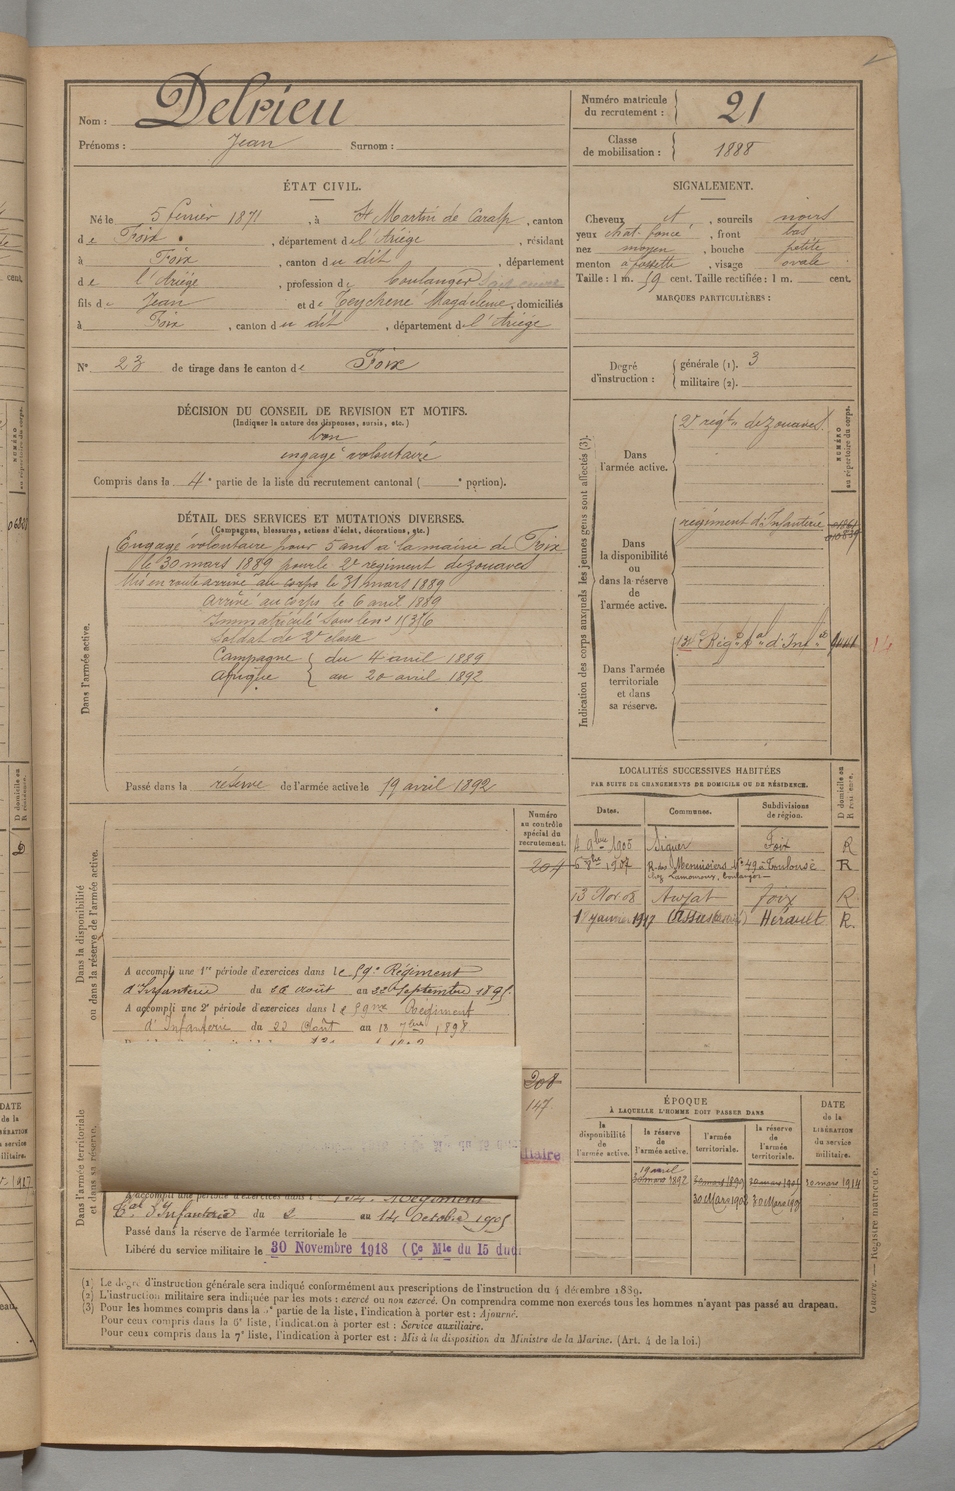 Nom : Delrieu
Prénoms : Jean Surnom :
Numéro matricule du recrutement : 21
Classe de mobilisation : 1888
ÉTAT CIVIL.
Né le 5 février 1871, à St Martin de Caralp, canton
de Foix, département de l'Ariège, résidant
à Foix, canton du dit, département
de l'Ariège, profession de boulanger
fils de Jean et de Teychene Magdeleine, domiciliés
à Foix, canton du dit, département de l'Ariège
N° 23 de tirage dans le canton de Foix
SIGNALEMENT.
Cheveux et, sourcils noirs
yeux chat. foncé, front bas
nez moyen, bouche petite
menton à fossette, visage ovale
Taille : 1 m. 59 cent. Taille rectifiée : 1 m. cent.
MARQUES PARTICULIÈRES :
Degré d'instruction : générale (1). 3
militaire (2).
DÉCISION DU CONSEIL DE REVISION ET MOTIFS.
(Indiquer la nature des dispenses, sursis, etc.)
bon
engagé volontaire
Compris dans la 4e partie de la liste du recrutement cantonal ( e portion).
DÉTAIL DES SERVICES ET MUTATIONS DIVERSES.
(Campagnes, blessures, actions d'éclat, décorations, etc.)
Dans l'armée active.
Engagé volontaire pour 5 ans à la mairie de Foix
le 30 mars 1889 pour le 2e régiment de zouaves
Mis en route arrivé au corps le 31 mars 1889
Arrivé au corps le 6 avril 1889
Immatriculé sous le n°
Soldat de 2e classe
Campagne { du 4 avril 1889
Afrique { au 20 avril 1892
Passé dans la réserve de l'armée active le 19 avril 1892
Indication des corps auxquels les jeunes gens sont affectés (3).
NUMÉRO au répertoire du corps.
Dans l'armée active.
2e régt de zouaves
Dans la disponibilité ou dans la réserve de l'armée active.
régiment d'Infanterie
Dans l'armée territoriale et dans sa réserve.
134e Régt tal d'Infie
LOCALITÉS SUCCESSIVES HABITÉES
PAR SUITE DE CHANGEMENTS DE DOMICILE OU DE RÉSIDENCE.
Dates. Communes. Subdivisions de région. D domicile ou R résidence.
4 9bre 1905 Siguer Foix R
6 8bre 1907 R. des Menuisiers N° 49 à Toulouse R
chez Lamomoux, boulanger
13 Nov 08 Auzat Foix R.
janvier 1917 Hérault R.
Numéro au contrôle spécial du recrutement.
204
Dans la disponibilité ou dans la réserve de l'armée active.
A accompli une 1re période d'exercices dans le 59e Régiment
d'Infanterie du août au 22 septembre 1895.
A accompli une 2e période d'exercices dans le 59me Régiment
d'Infanterie du 22 Août au 18 7bre 1898
208
147
Dans l'armée territoriale et dans sa réserve.
A accompli une période d'exercices dans l 134e Régiment
tal d'Infanterie du 2 au 14 octobre 1905
Passé dans la réserve de l'armée territoriale le
Libéré du service militaire le 30 Novembre 1918 (Ce Mle du 15 dudi
ÉPOQUE
À LAQUELLE L'HOMME DOIT PASSER DANS
la disponibilité de l'armée active. la réserve de l'armée active. l'armée territoriale. la réserve de l'armée territoriale. DATE de la LIBÉRATION du service militaire.
19 avril
30 mars 1892 30 mars 1914
30 Mars 1902
(1) Le degré d'instruction générale sera indiqué conformément aux prescriptions de l'instruction du 4 décembre 1889.
(2) L'instruction militaire sera indiquée par les mots : exercé ou non exercé. On comprendra comme non exercés tous les hommes n'ayant pas passé au drapeau.
(3) Pour les hommes compris dans la 5e partie de la liste, l'indication à porter est : Ajourné.
Pour ceux compris dans la 6e liste, l'indication à porter est : Service auxiliaire.
Pour ceux compris dans la 7e liste, l'indication à porter est : Mis à la disposition du Ministre de la Marine. (Art. 4 de la loi.)
Guerre. — Registre matricule.